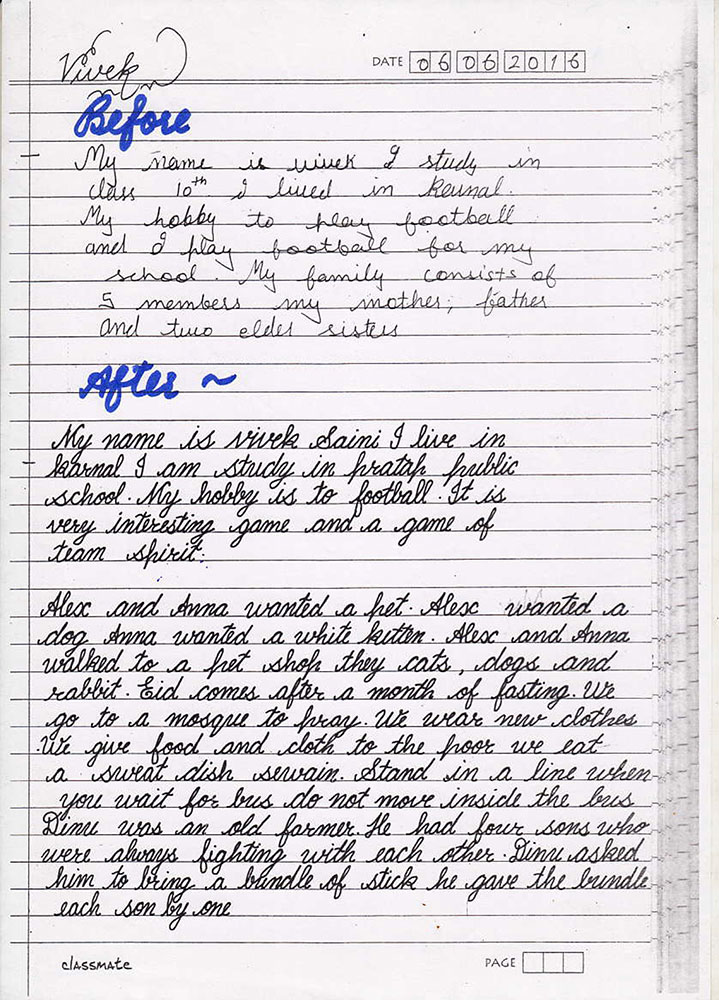 Vivek
DATE 06 06 2016
Before
My name is vivek I study in
class 10th I lived in Karnal.
My hobby to play football
and I play football for my
school. My family consists of
5 members my mother, father
and two elder sisters
After ~
My name is vivek Saini I live in
karnal I am study in pratap public
school. My hobby is to football. It is
very interesting game and a game of
team spirit.
Alex and Anna wanted a pet. Alex wanted a
dog Anna wanted a white kitten. Alex and Anna
walked to a pet shop they cats, dogs and
rabbit. Eid comes after a month of fasting. We
go to a mosque to pray. We wear new clothes
.We give food and cloth to the poor we eat
a sweat dish sewain. Stand in a line when
you wait for bus do not move inside the bus
Dinu was an old farmer. He had four sons who
were always fighting with each other. Dinu asked
him to bring a bundle of stick he gave the bundle
each son by one
classmate
PAGE